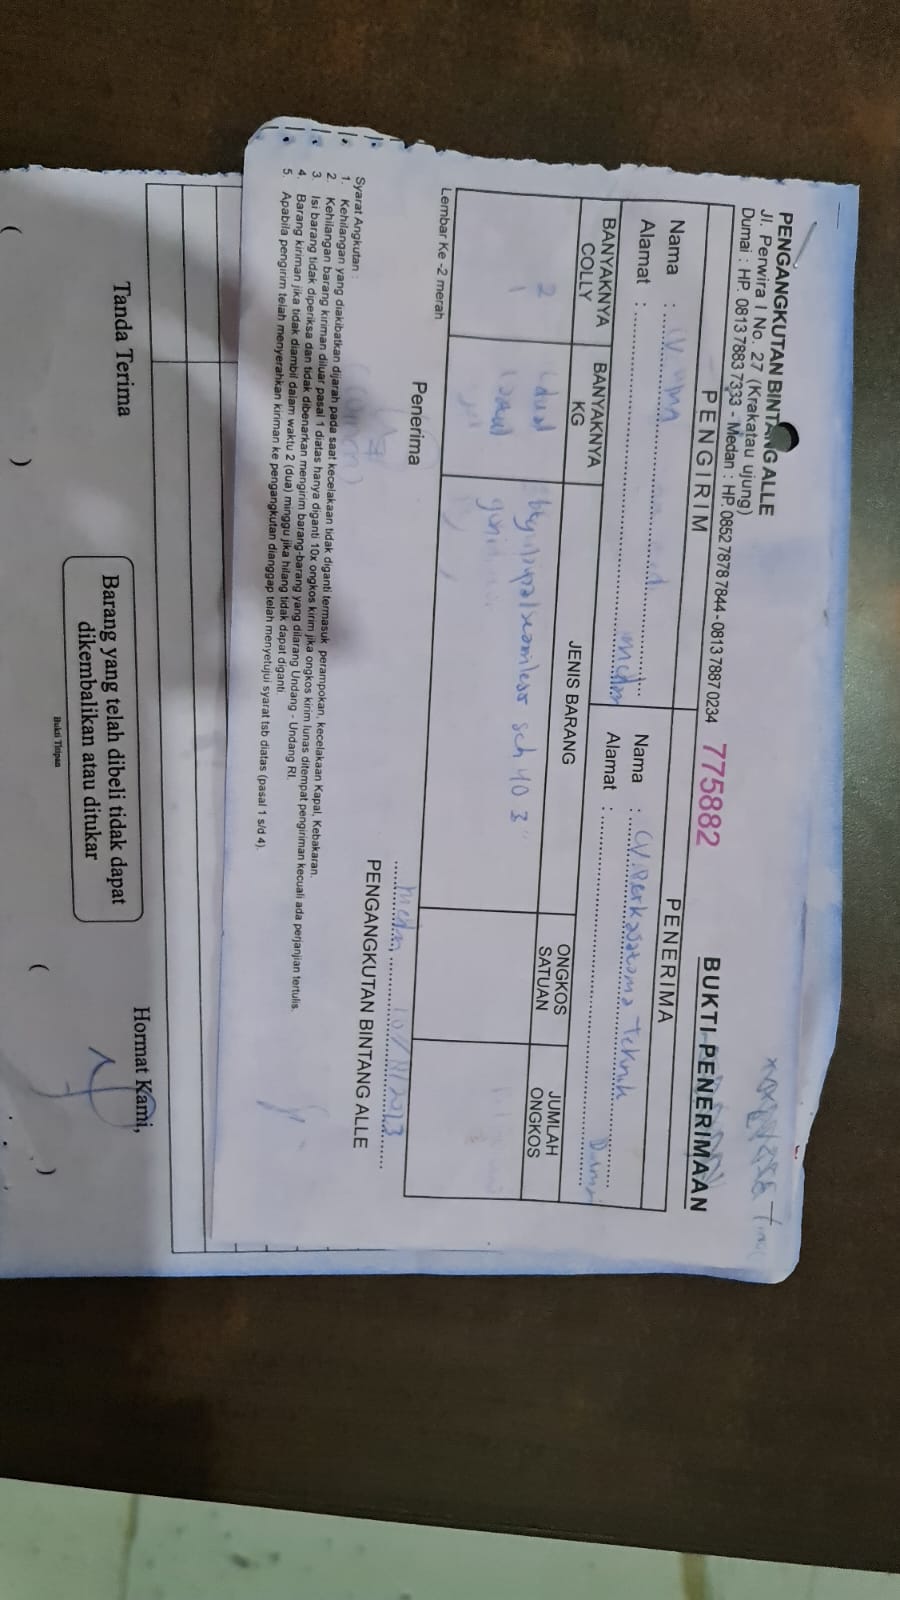 PENGANGKUTAN BINTANG ALLE
Jl. Perwira I No. 27 (Krakatau ujung)
Dumai : HP. 0813 7883 7333 - Medan : HP. 0852 7878 7844 - 0813 7887 0234
775882
BUKTI PENERIMAAN
PENGIRIM
PENERIMA
Nama :
Alamat : medan
Nama : CV. Perkasatama Teknik
Alamat : Dumai
BANYAKNYA COLLY
BANYAKNYA KG
JENIS BARANG
ONGKOS SATUAN
JUMLAH ONGKOS
2 (dua) seamless sch 40 3"
1 (satu)
Lembar Ke -2 merah
Penerima
Medan,
PENGANGKUTAN BINTANG ALLE
Syarat Angkutan :
1. Kehilangan yang diakibatkan dijarah pada saat kecelakaan tidak diganti termasuk perampokan, kecelakaan Kapal, Kebakaran.
2. Kehilangan barang kiriman diluar pasal 1 diatas hanya diganti 10x ongkos kirim jika ongkos kirim lunas ditempat pengiriman kecuali ada perjanjian tertulis.
3. Isi barang tidak diperiksa dan tidak dibenarkan mengirim barang-barang yang dilarang Undang - Undang RI.
4. Barang kiriman jika tidak diambil dalam waktu 2 (dua) minggu jika hilang tidak dapat diganti
5. Apabila pengirim telah menyerahkan kiriman ke pengangkutan dianggap telah menyetujui syarat tsb diatas (pasal 1 s/d 4).
Tanda Terima
Barang yang telah dibeli tidak dapat
dikembalikan atau ditukar
Bukti Titipan
Hormat Kami,